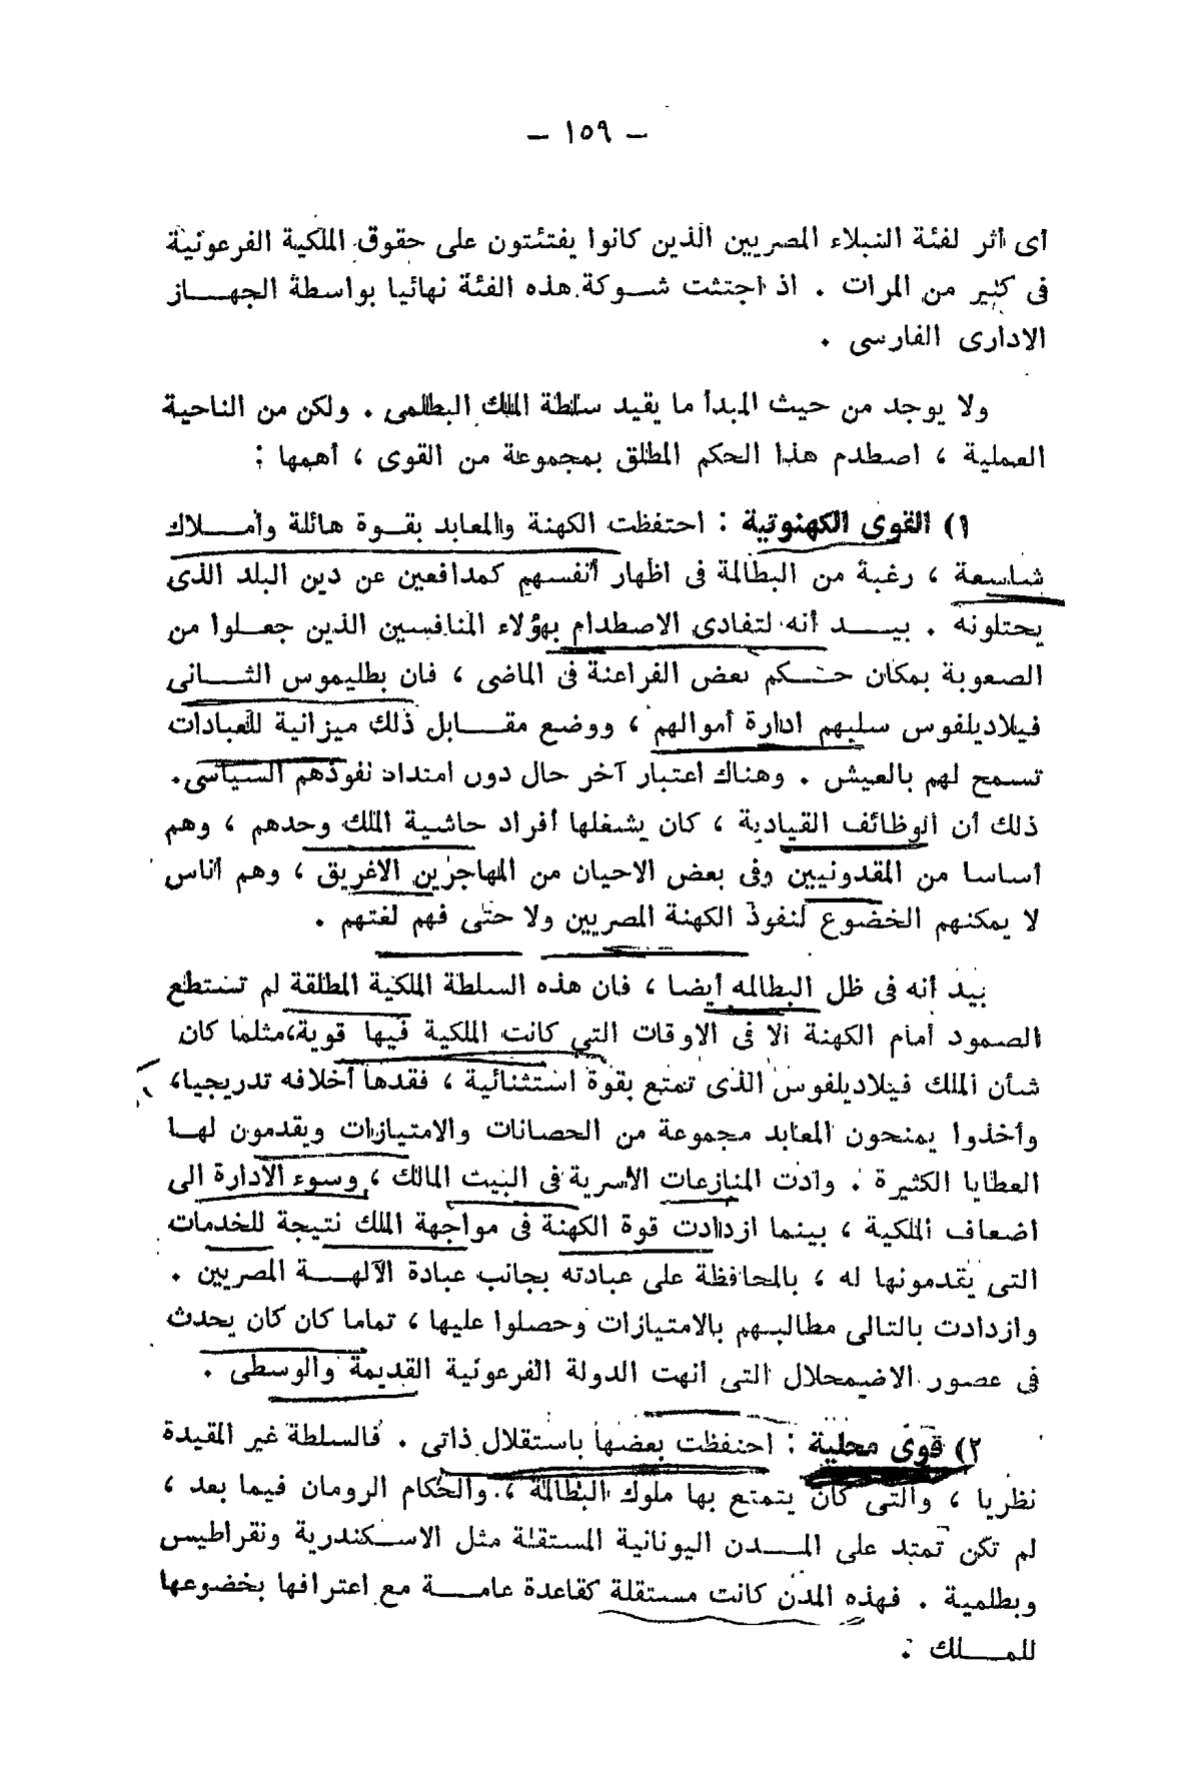 — ١٥٩ —
أى أثر لفئة النبلاء المصريين الذين كانوا يفتئتون على حقوق الملكية الفرعونية
فى كثير من المرات . اذ اجتثت شوكة هذه الفئة نهائيا بواسطة الجهاز
الادارى الفارسى .
ولا يوجد من حيث المبدأ ما يقيد سلطة الملك البطلمى . ولكن من الناحية
العملية ، اصطدم هذا الحكم المطلق بمجموعة من القوى ، أهمها :
١) القوى الكهنوتية : احتفظت الكهنة والمعابد بقوة هائلة وأملاك
شاسعة ، رغبة من البطالمة فى اظهار أنفسهم كمدافعين عن دين البلد الذى
يحتلونه . بيد أنه لتفادى الاصطدام بهؤلاء المنافسين الذين جعلوا من
الصعوبة بمكان حكم بعض الفراعنة فى الماضى ، فان بطليموس الثانى
فيلاديلفوس سلبهم ادارة أموالهم ، ووضع مقابل ذلك ميزانية للعبادات
تسمح لهم بالعيش . وهناك اعتبار آخر حال دون امتداد نفوذهم السياسى .
ذلك أن الوظائف القيادية ، كان يشغلها أفراد حاشية الملك وحدهم ، وهم
أساسا من المقدونيين وفى بعض الاحيان من المهاجرين الاغريق ، وهم أناس
لا يمكنهم الخضوع لنفوذ الكهنة المصريين ولا حتى فهم لغتهم .
بيد أنه فى ظل البطالمه أيضا ، فان هذه السلطة الملكية المطلقة لم تستطع
الصمود أمام الكهنة الا فى الاوقات التي كانت الملكية فيها قوية،مثلما كان
شأن الملك فيلاديلفوس الذى تمتع بقوة استثنائية ، فقدها أخلافه تدريجيا،
وأخذوا يمنحون المعابد مجموعة من الحصانات والامتيازات ويقدمون لها
العطايا الكثيرة . وأدت المنازعات الأسرية فى البيت المالك ، وسوء الادارة الى
اضعاف الملكية ، بينما ازدادت قوة الكهنة فى مواجهة الملك نتيجة للخدمات
التى يقدمونها له ، بالمحافظة على عبادته بجانب عبادة الآلهة المصريين .
وازدادت بالتالى مطالبهم بالامتيازات وحصلوا عليها ، تماما كان كان يحدث
فى عصور الاضمحلال التى أنهت الدولة الفرعونية القديمة والوسطى .
٢) قوى محلية : احتفظت بعضها باستقلال ذاتى . فالسلطة غير المقيدة
نظريا ، والتى كان يتمتع بها ملوك البطالمة ، والحكام الرومان فيما بعد ،
لم تكن تمتد على المدن اليونانية المستقلة مثل الاسكندرية ونقراطيس
وبطلمية . فهذه المدن كانت مستقلة كقاعدة عامة مع اعترافها بخضوعها
للملك .